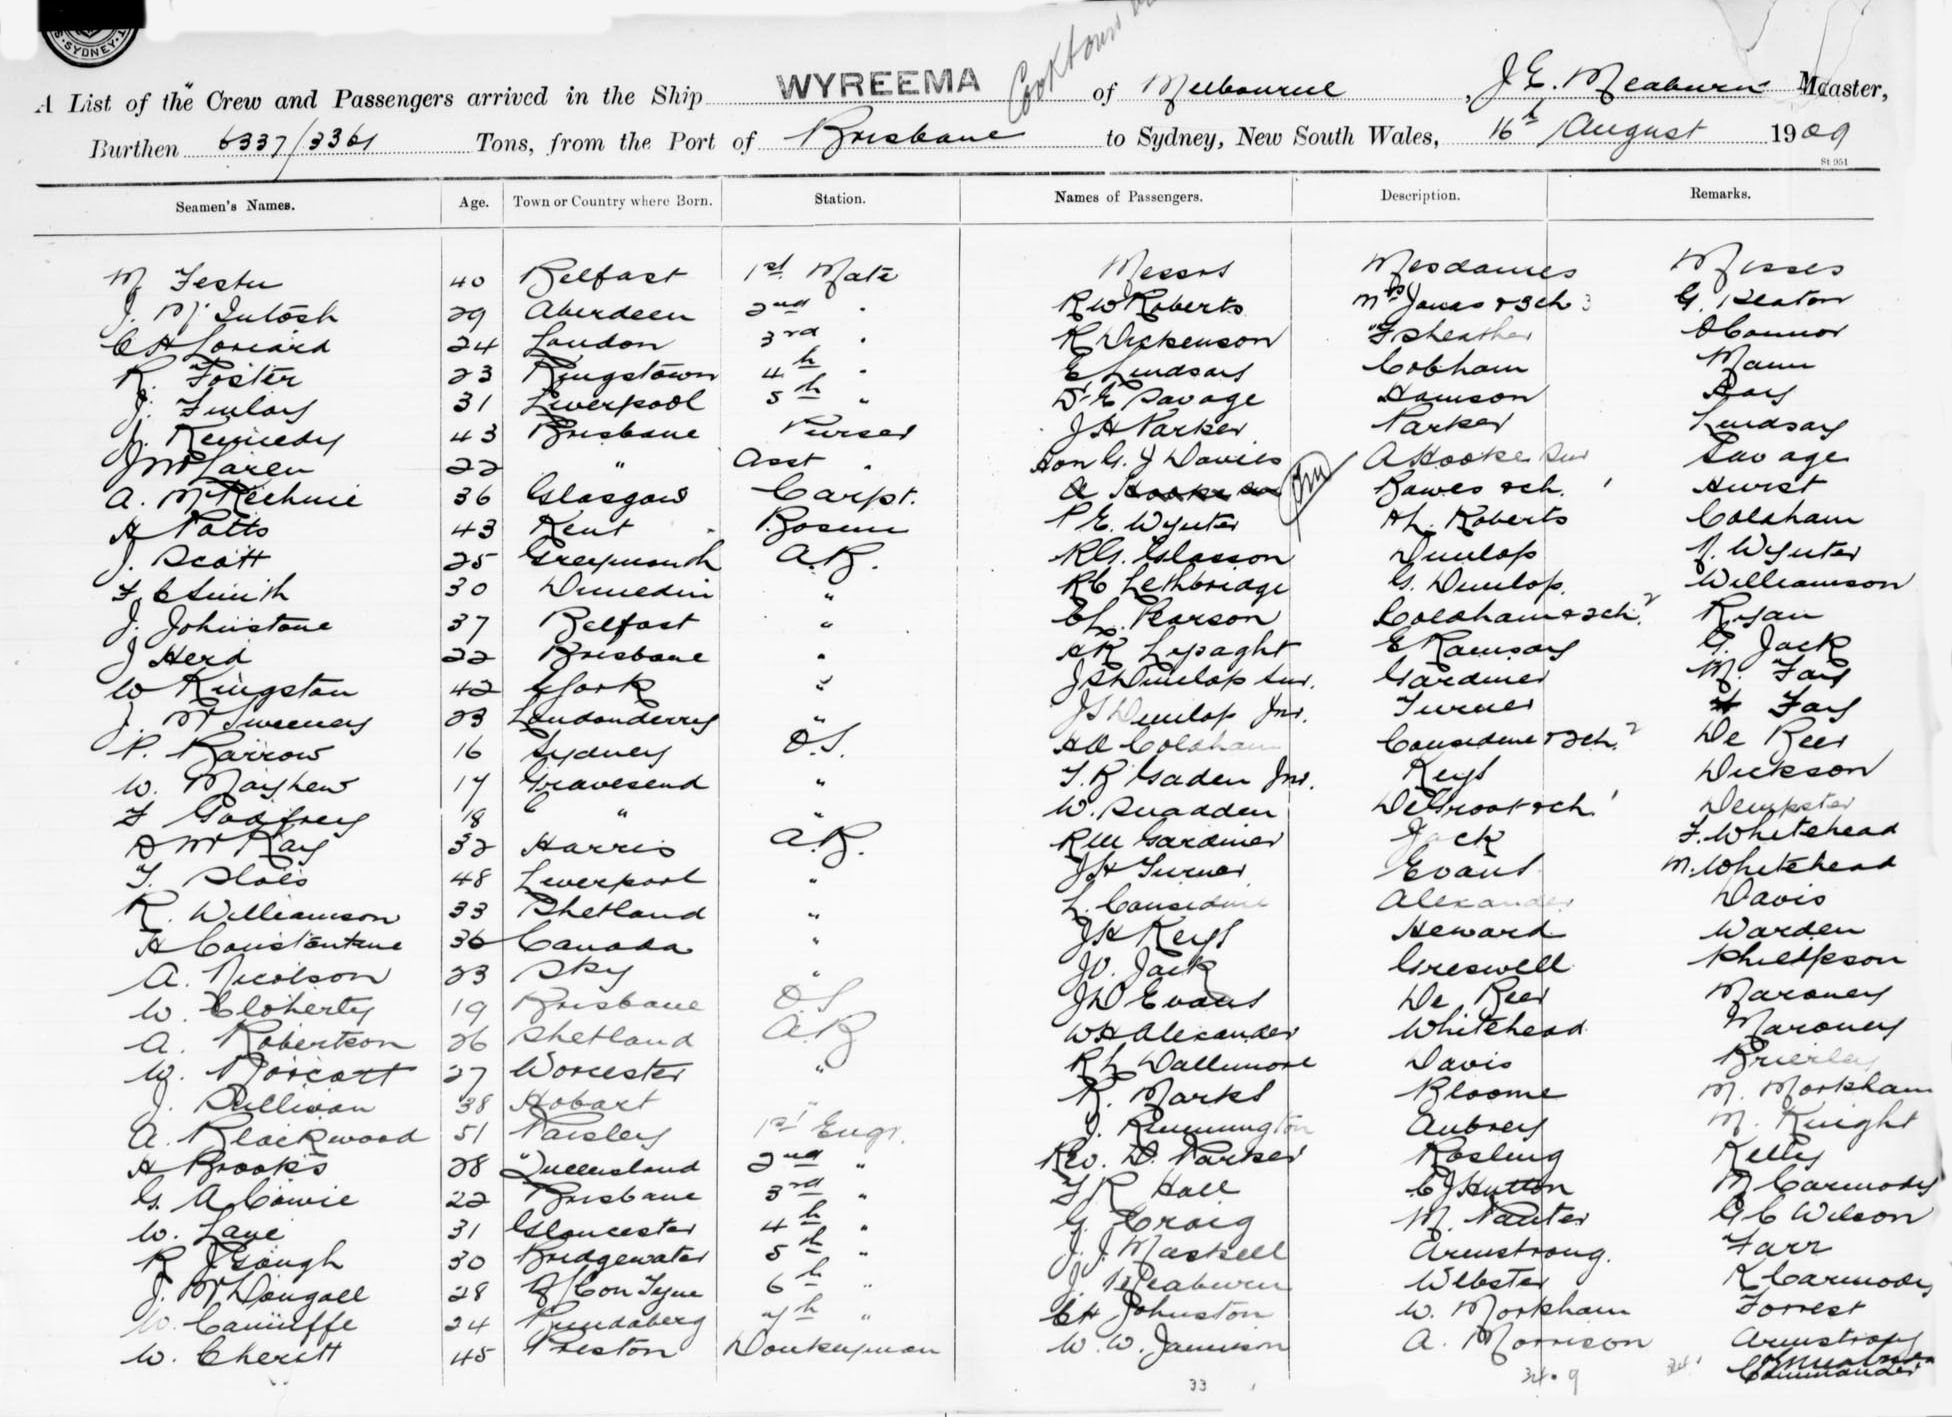 SYDNEY
Cooktown
A List of the Crew and Passengers arrived in the Ship WYREEMA of Melbourne, J. E. Meaburn Master,
Burthen 6337/3361 Tons, from the Port of Brisbane to Sydney, New South Wales, 16th August 1909
St 951
Seamen's Names. Age. Town or Country where Born. Station. Names of Passengers. Description. Remarks.
M 40 Belfast 1st Mate Messrs Mesdames Misses
J. McIntosh 29 Aberdeen 2nd " R W Roberts Mrs Jonas & 3 ch 3 G. Heaton
C H Loriard 24 London 3rd " R Dickenson Fsheather O'Connor
R. Foster 23 Kingstown 4th " E Lindsay Cobham Mann
J. Finlay 31 Liverpool 5th " D. E Savage Hamson Hay
J. Kennedy 43 Brisbane Purser J H Parker Parker Lindsay
J McLaren 22 " Asst " Hon G. J Davies A Hooke Snr Savage
A. McKechnie 36 Glasgow Carpt. A Hooke Snr Bowes & ch. 1 Hurst
H Potts 43 Kent Bosun P E. Wynter H L. Roberts Coldham
J. Scott 25 Greymouth A.B. R G. Glasson Dunlop N. Wynter
F. C Smith 30 Dunedin " R C Lethbridge G. Dunlop. Williamson
J. Johnstone 37 Belfast " E L. Pearson Coldham & 2 ch. 2 Ryan
J Herd 22 Brisbane " H R Lysaght E Ramsay G. Jack
W Kingston 42 York " J S Dunlop Snr. Gardiner M. Fay
J. McSweeney 23 Londonderry " J S Dunlop Jnr. Turner H Fay
P. Barrow 16 Sydney O.S. H A Coldham Considine & 2 ch. 2 De Beer
W. Mayhew 17 Gravesend " T. B Gaden Jnr. Keys Dickson
F Godfrey 18 " " W. Snadden De Groot & ch. 1 Dempster
D McKay 32 Harris A.B. R W Gardiner Jack F. Whitehead
T. 48 Liverpool " J H Turner Evans M. Whitehead
R. Williamson 33 Shetland " L. Considine Alexander Davis
H Constantine 36 Canada " J H Keys Heward Warden
A. Nicolson 23 Sky " J O. Jack Creswell Phillpson
W. Cloherty 19 Brisbane O.S. J D Evans De Beer Maroney
A. Robertson 26 Shetland A.B W H Alexander Whitehead Maroney
W. 27 Worcester " R L Dallimore Davis Brierley
J. Sullivan 38 Hobart " R. Marks Bloome M. Morkham
A. Blackwood 51 Paisley 1st Engr. J. Rimmington Aubrey M. Knight
H Brooks 28 Queensland 2nd " Rev. D. Parker Rosling Kelly
G. A Cowie 22 Brisbane 3rd " F R Hall C J Hutton M Carmody
W. Lane 31 Gloucester 4th " G. Craig M. Panter G C Wilson
R J Gough 30 Bridgewater 5th " J. J. Maskell Armstrong. Farr
J. McDougall 28 N/C on Tyne 6th " J. Meaburn Webster K Carmody
W. Cauniffe 24 Bundaberg 7th " C H Johnston W. Morkham Forrest
W. Cheritt 45 Preston Donkeyman W. W. Jamieson A. Morrison Armstrong
33 34 . 9 34 Commander